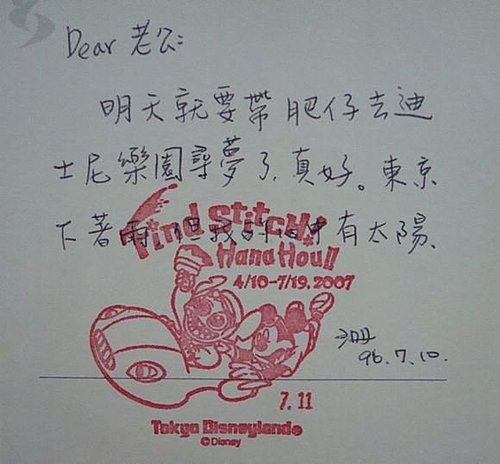 Dear 老公:
明天就要帶肥仔去迪
士尼樂園尋夢了,真好。東京
下著雨,但我的心中有太陽、
Find Stitch!
Hana Hou!!
4/10-7/19, 2007
96.7.10.
7.11
Tokyo Disneyland®
©Disney